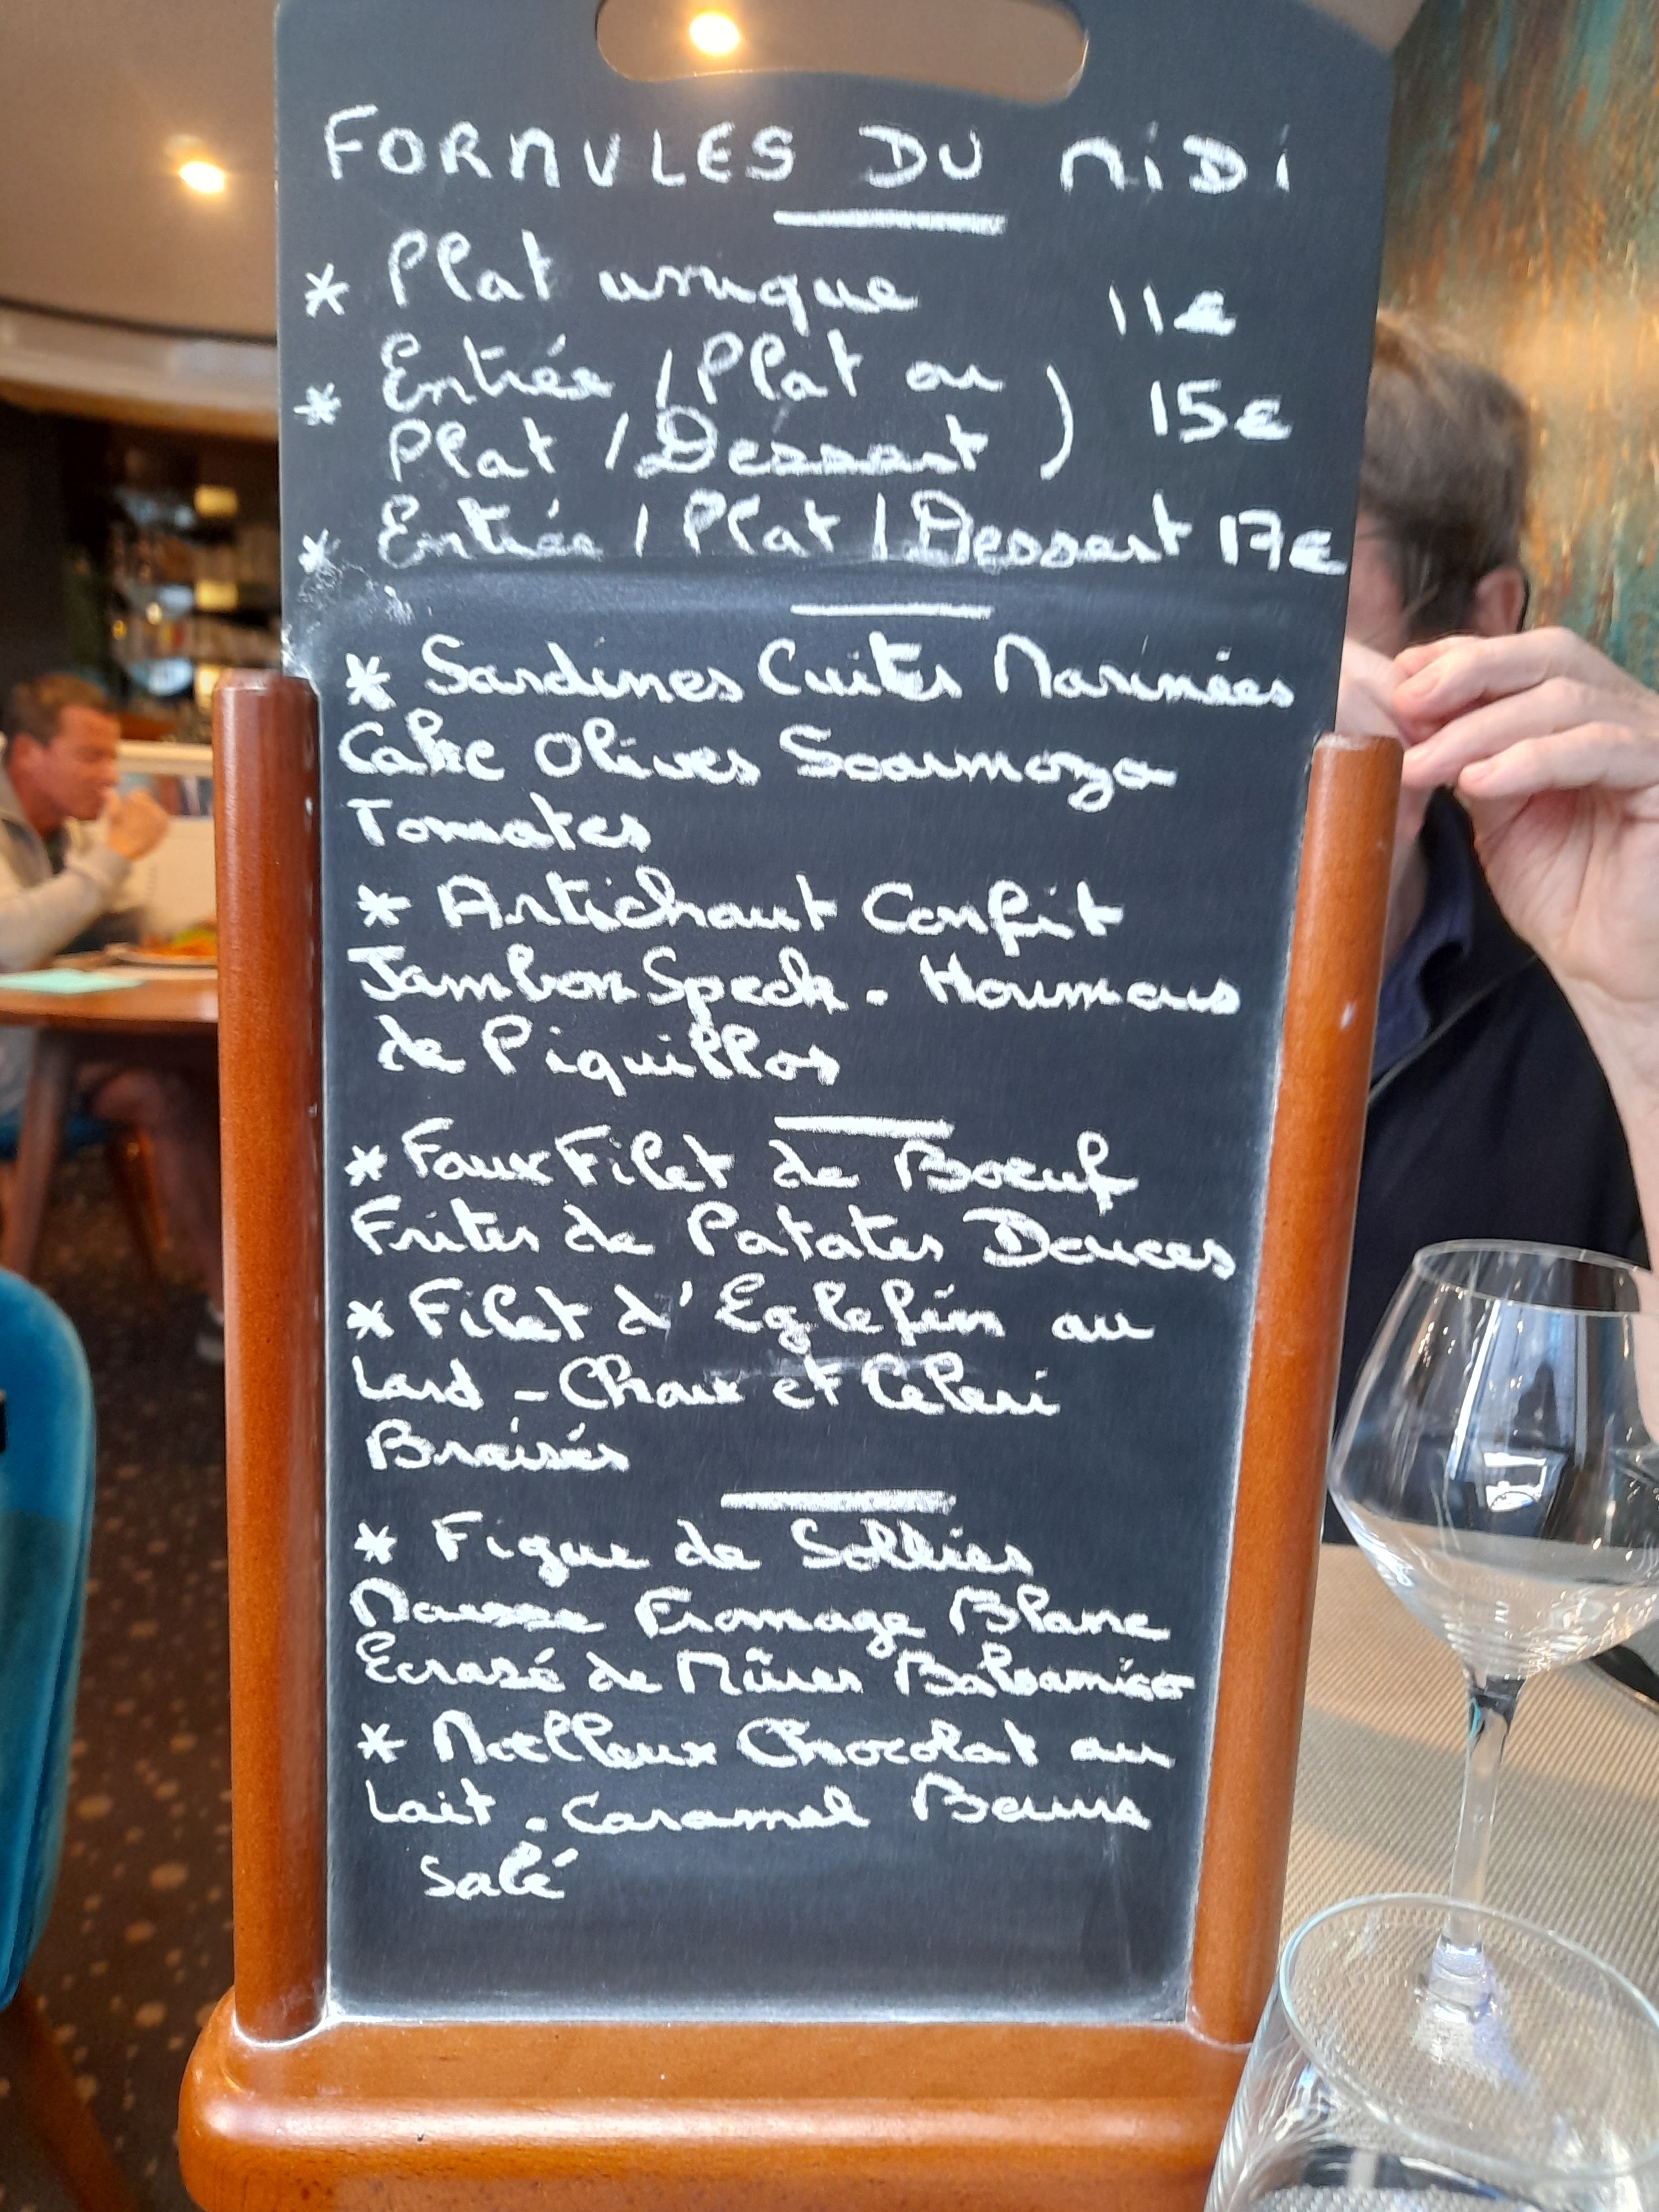 FORMULES DU MIDI
* Plat unique 11€
* Entrée / Plat ou
Plat / Dessert ) 15€
* Entrée / Plat / Dessert 17€
* Sardines Cuites Marinées
Cake Olives Scarmoza
Tomates
* Artichaut Confit
Jambon Speck. Houmous
de Piquillos
* Faux Filet de Boeuf
Frites de Patates Douces
* Filet d'Eglefin au
Lard - Choux et Céleri
Braisés
* Figue de Solliès
Mousse Fromage Blanc
Ecrasé de Mûres Balsamico
* Moelleux Chocolat au
Lait . Caramel Beurre
Salé